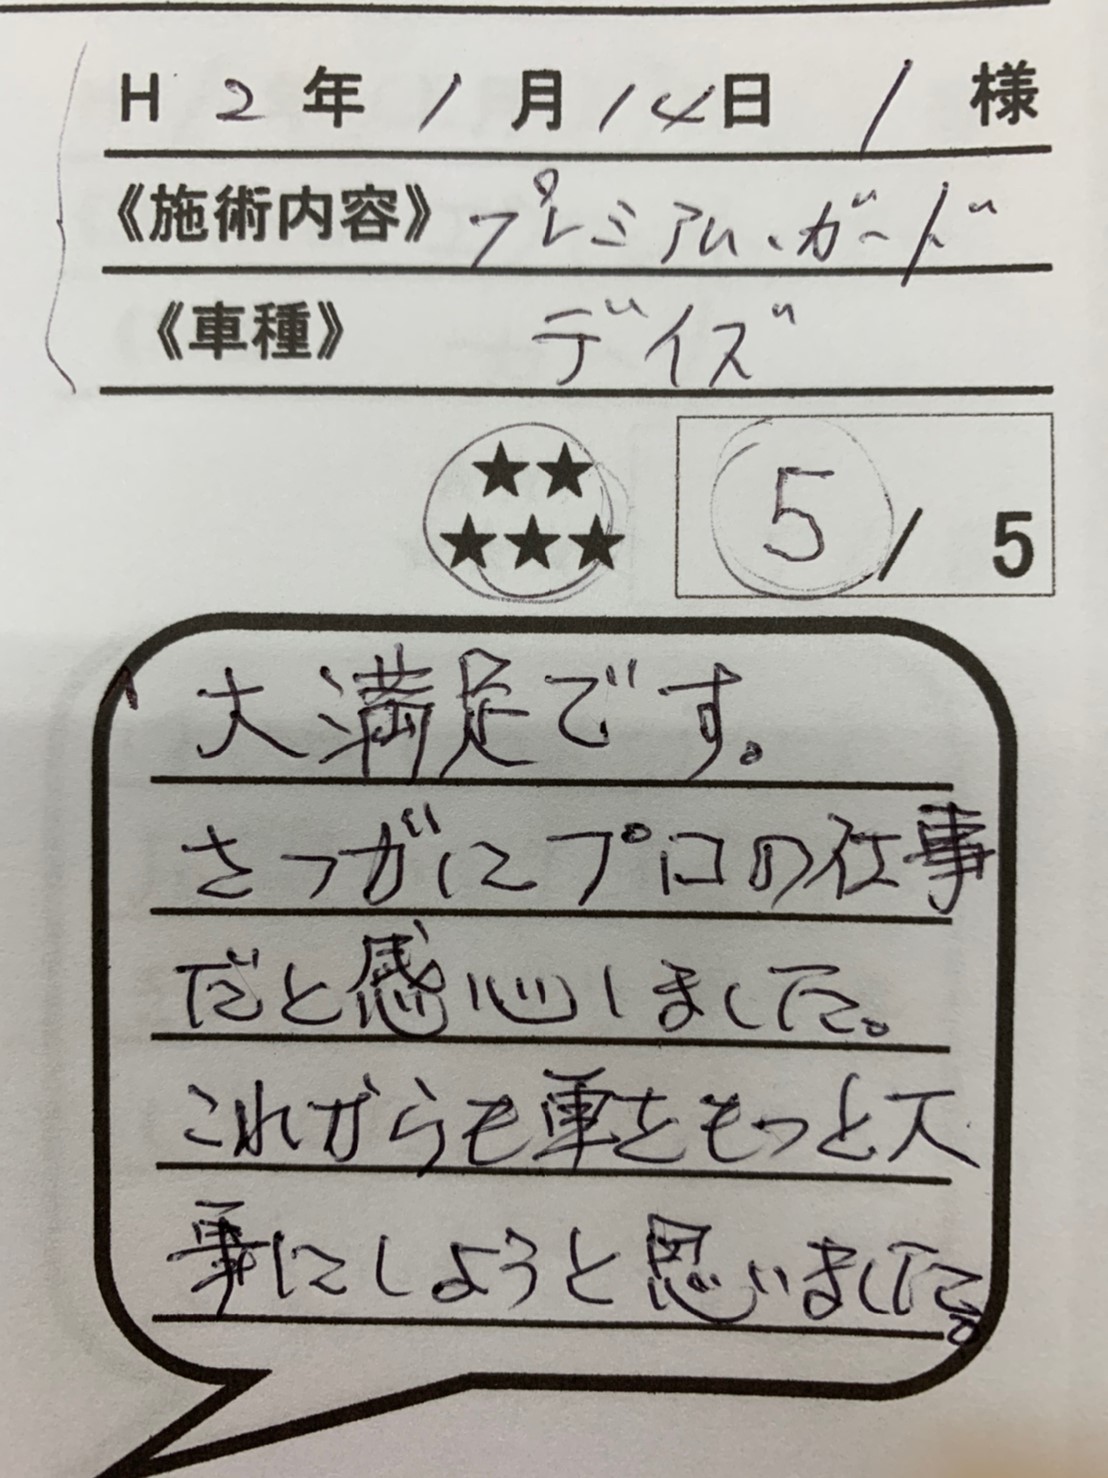 H 2年 1月 14日 様
《施術内容》 プレミアム・ガード
《車種》 デイズ
★★
★★★
5 / 5
大満足です。
さっがにプロの仕事
だと感心しました。
これからも車をもっと大
事にしようと思いました。